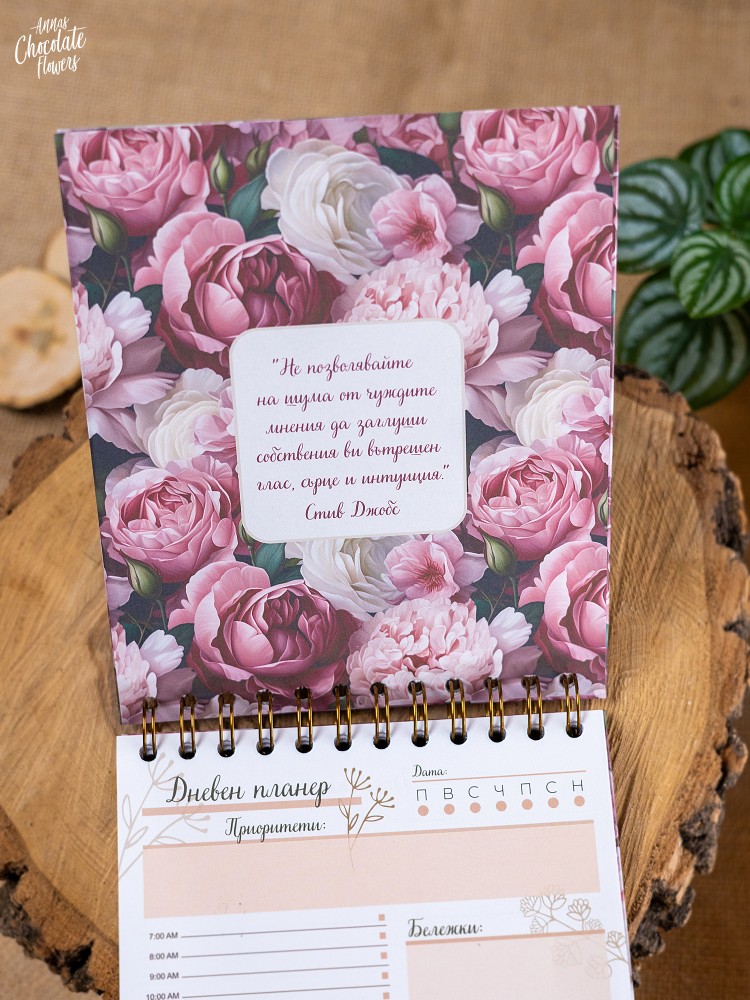 Annas
Chocolate
Flowers
"Не позволявайте
на шума от чуждите
мнения да заглуши
собствения ви вътрешен
глас, сърце и интуиция."
Стив Джобс
Дневен планер
Дата:
П В С Ч П С Н
Приоритети:
7:00 AM
8:00 AM
9:00 AM
10:00 AM
Бележки: